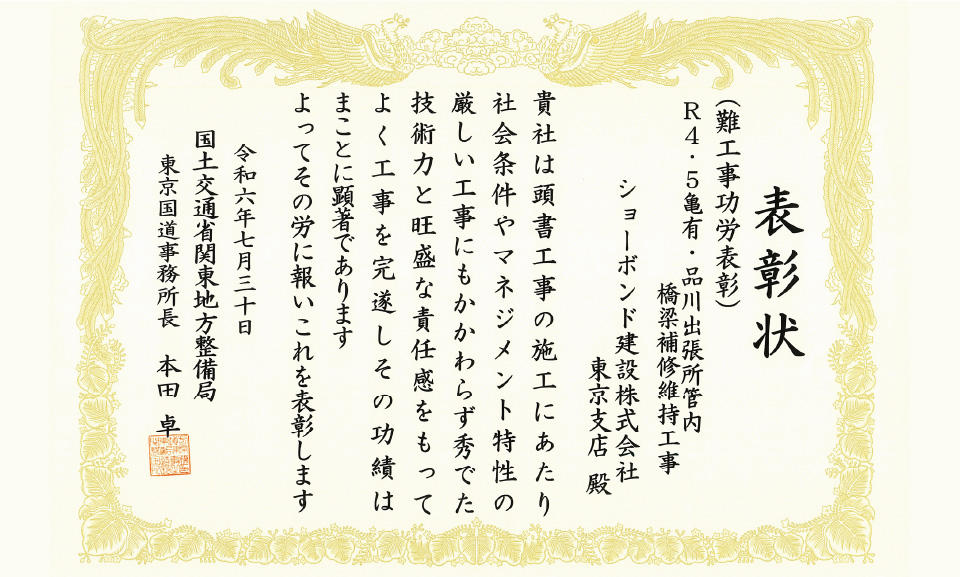 表彰状
(難工事功労表彰)
R4・5亀有・品川出張所管内
橋梁補修維持工事
ショーボンド建設株式会社
東京支店 殿
貴社は頭書工事の施工にあたり
社会条件やマネジメント特性の
厳しい工事にもかかわらず秀でた
技術力と旺盛な責任感をもって
よく工事を完遂しその功績は
まことに顕著であります
よってその労に報いこれを表彰します
令和六年七月三十日
国土交通省関東地方整備局
東京国道事務所長 本田 卓